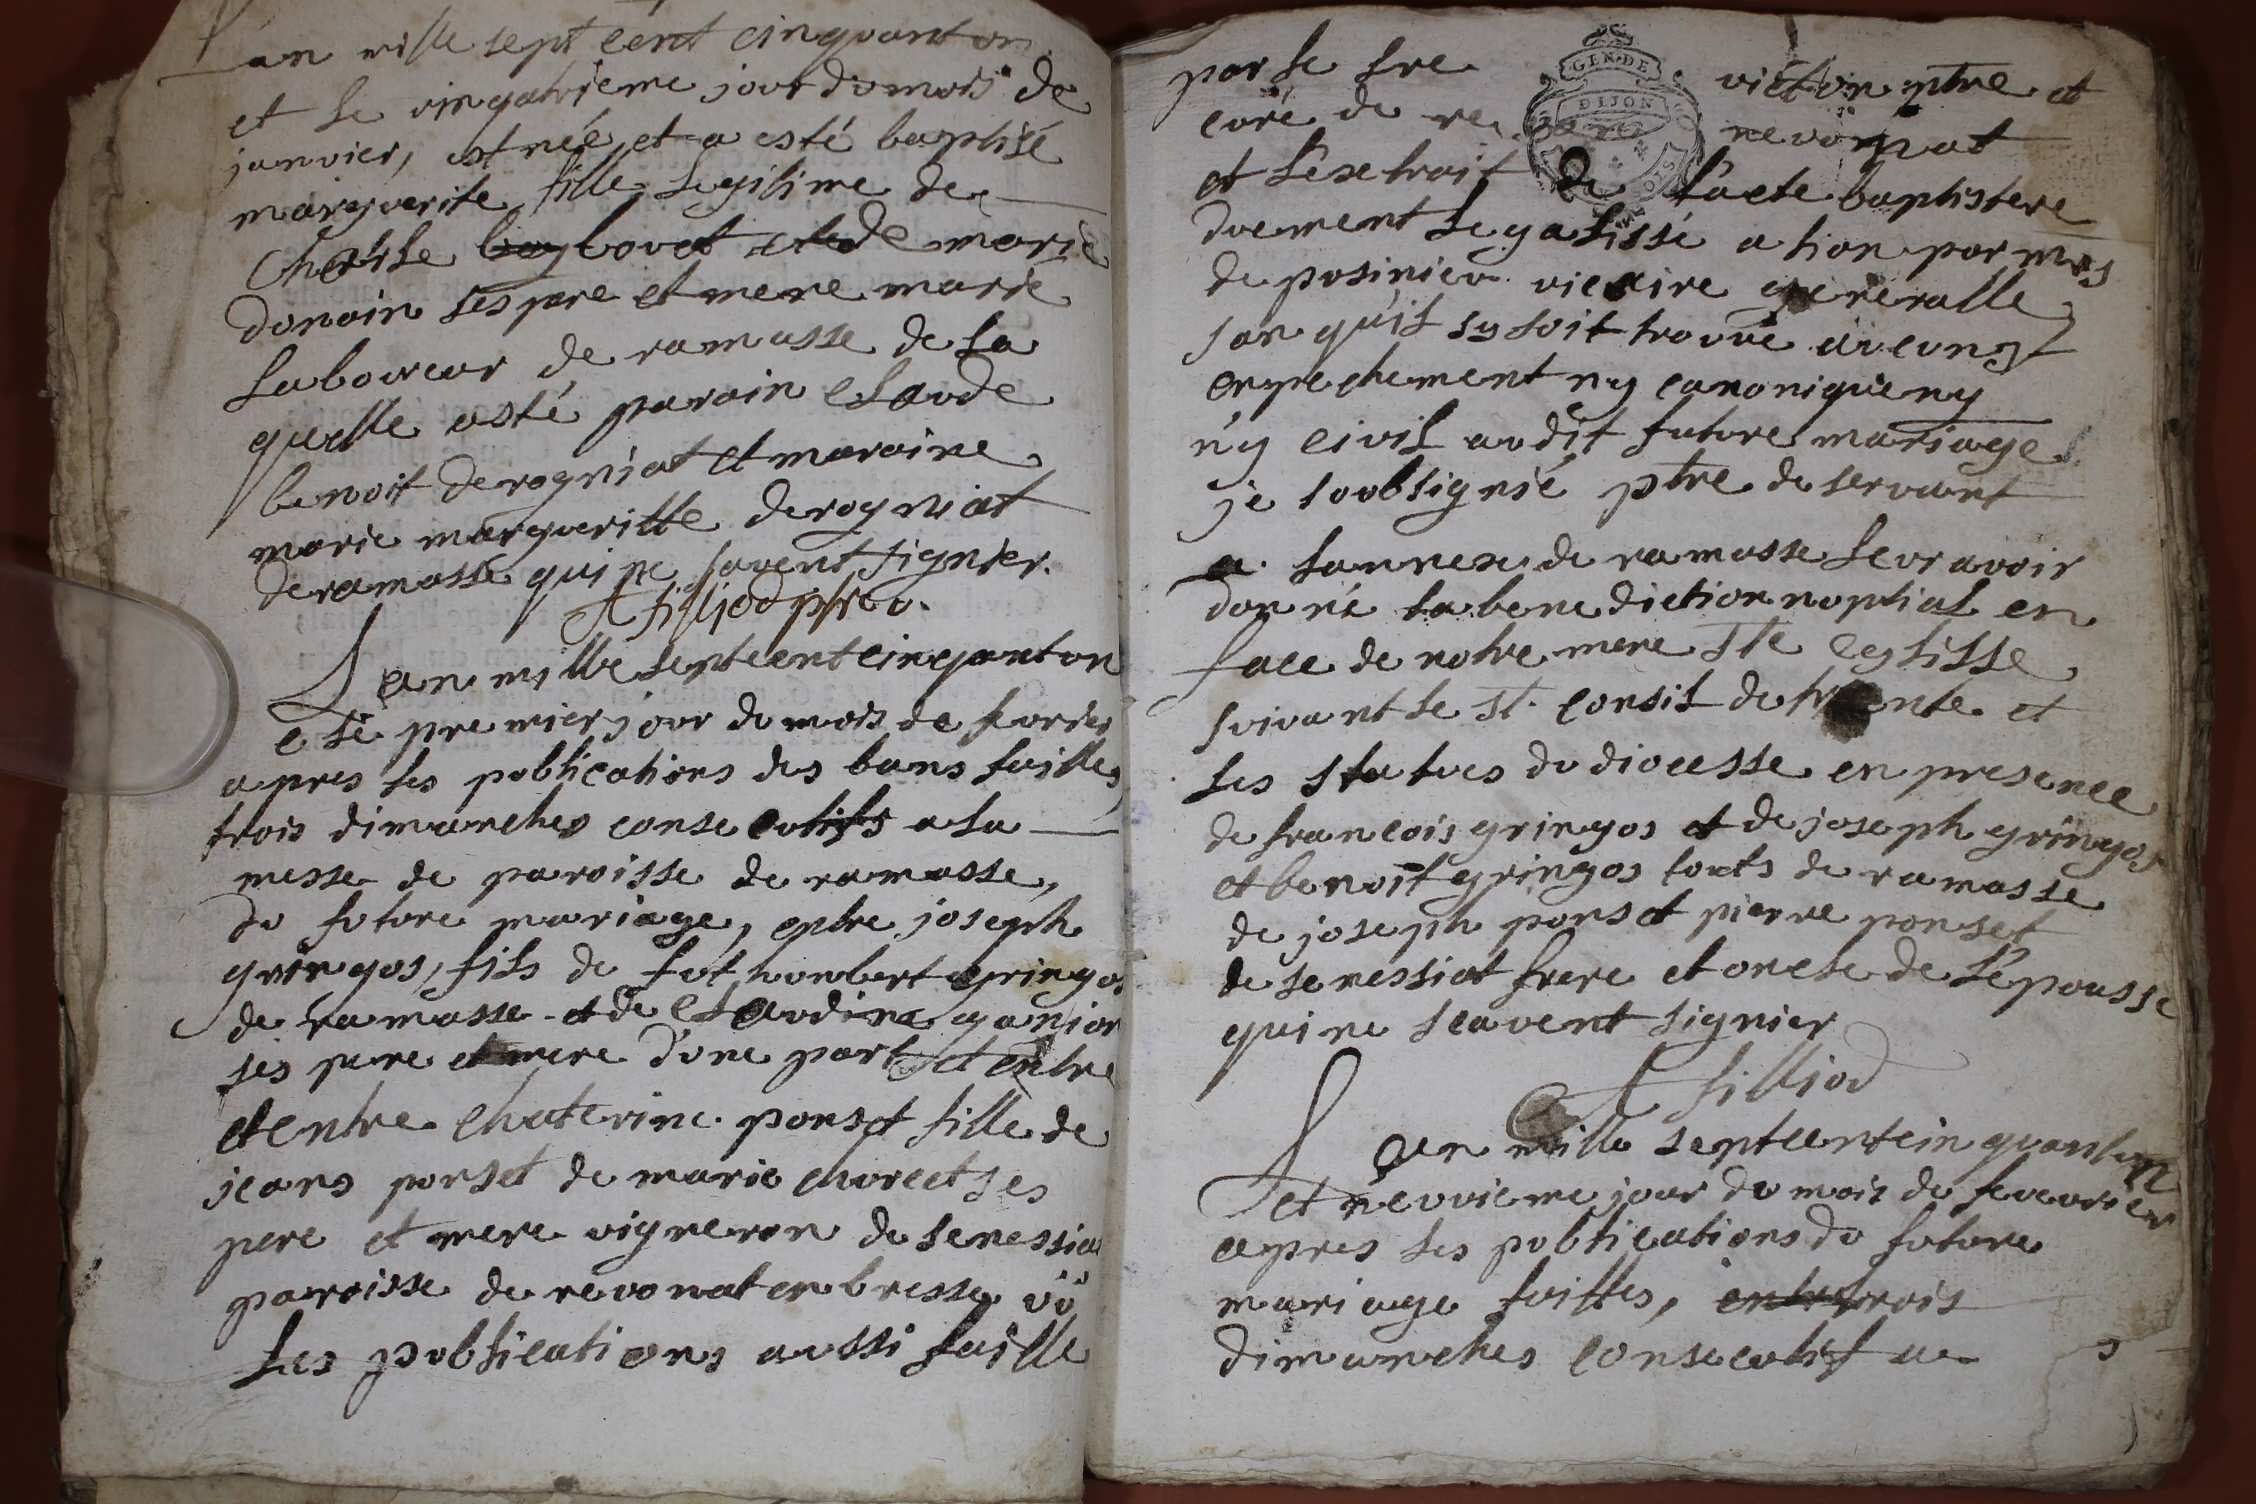 L'an mille sept cent cinquant un
et le vingatrieme jour du mois de
janvier, est née et a esté baptisé
marguerite fille legitime de
Charle bouvet et de marie
donain ses pere et mere marié
laboureur de ramasse de la
quelle esté parain claude
benoit derogniat et maraine
marie margueritte derogniat
de ramasse qui ne savent signier.
A filliod ptre v.
L'an mille septcentcinquantun
e le premier jour du mois de fevrier
apres les publications des bans faittes
trois dimanches consecutifs a la
messe de paroisse de ramasse,
du future mariage, entre joseph
gringos, fils de fut humbert gringos
de ramasse et de claudine ganion
ses pere et mere d'une part et entre
et entre chaterine ponset fille de
jeans ponset de marie choret ses
pere et mere vigneron de senessiat
paroisse de revonat en bresse vû
les publications aussi faitte
par le sre victon ptre et
curé de revonnat
et l'extrait de l'acte baptistere
duement legalissé a lion par mrs
de posinieu vicaire generalle
san qu'il sy soit trouvé aucuns
enpechement ny canonique ny
n'y civil audit future mariage
je soubsignié ptre deservant
a lannexe de ramasse leur avoir
donné la benediction nuptial en
face de notre mere ste eglisse
suivant le st. consil de trente et
les statues du diocesse en presence
de francois gringos et de joseph gringos
et benoit gringos touts de ramasse
de joseph ponset pierre ponset
de senessiat frere et oncle de l'épousse
qui ne scavent signier
A filliod
L'an mille septcentcinquantun
et neuvieme jour du mois de fevvrier
apres les publications du future
mariage faittes, entre trois
dimanches consecutif a
GEN·DE
DIJON